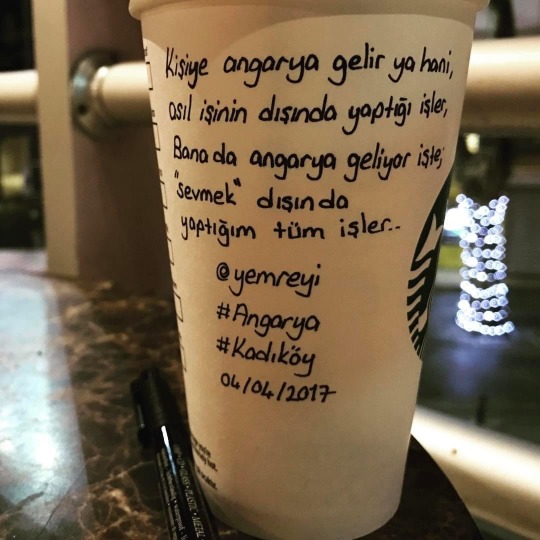 Kişiye angarya gelir ya hani,
asıl işinin dışında yaptığı işler,
Bana da angarya geliyor işte;
"sevmek" dışında
yaptığım tüm işler..
@yemreyi
#Angarya
#Kadıköy
04/04/2017